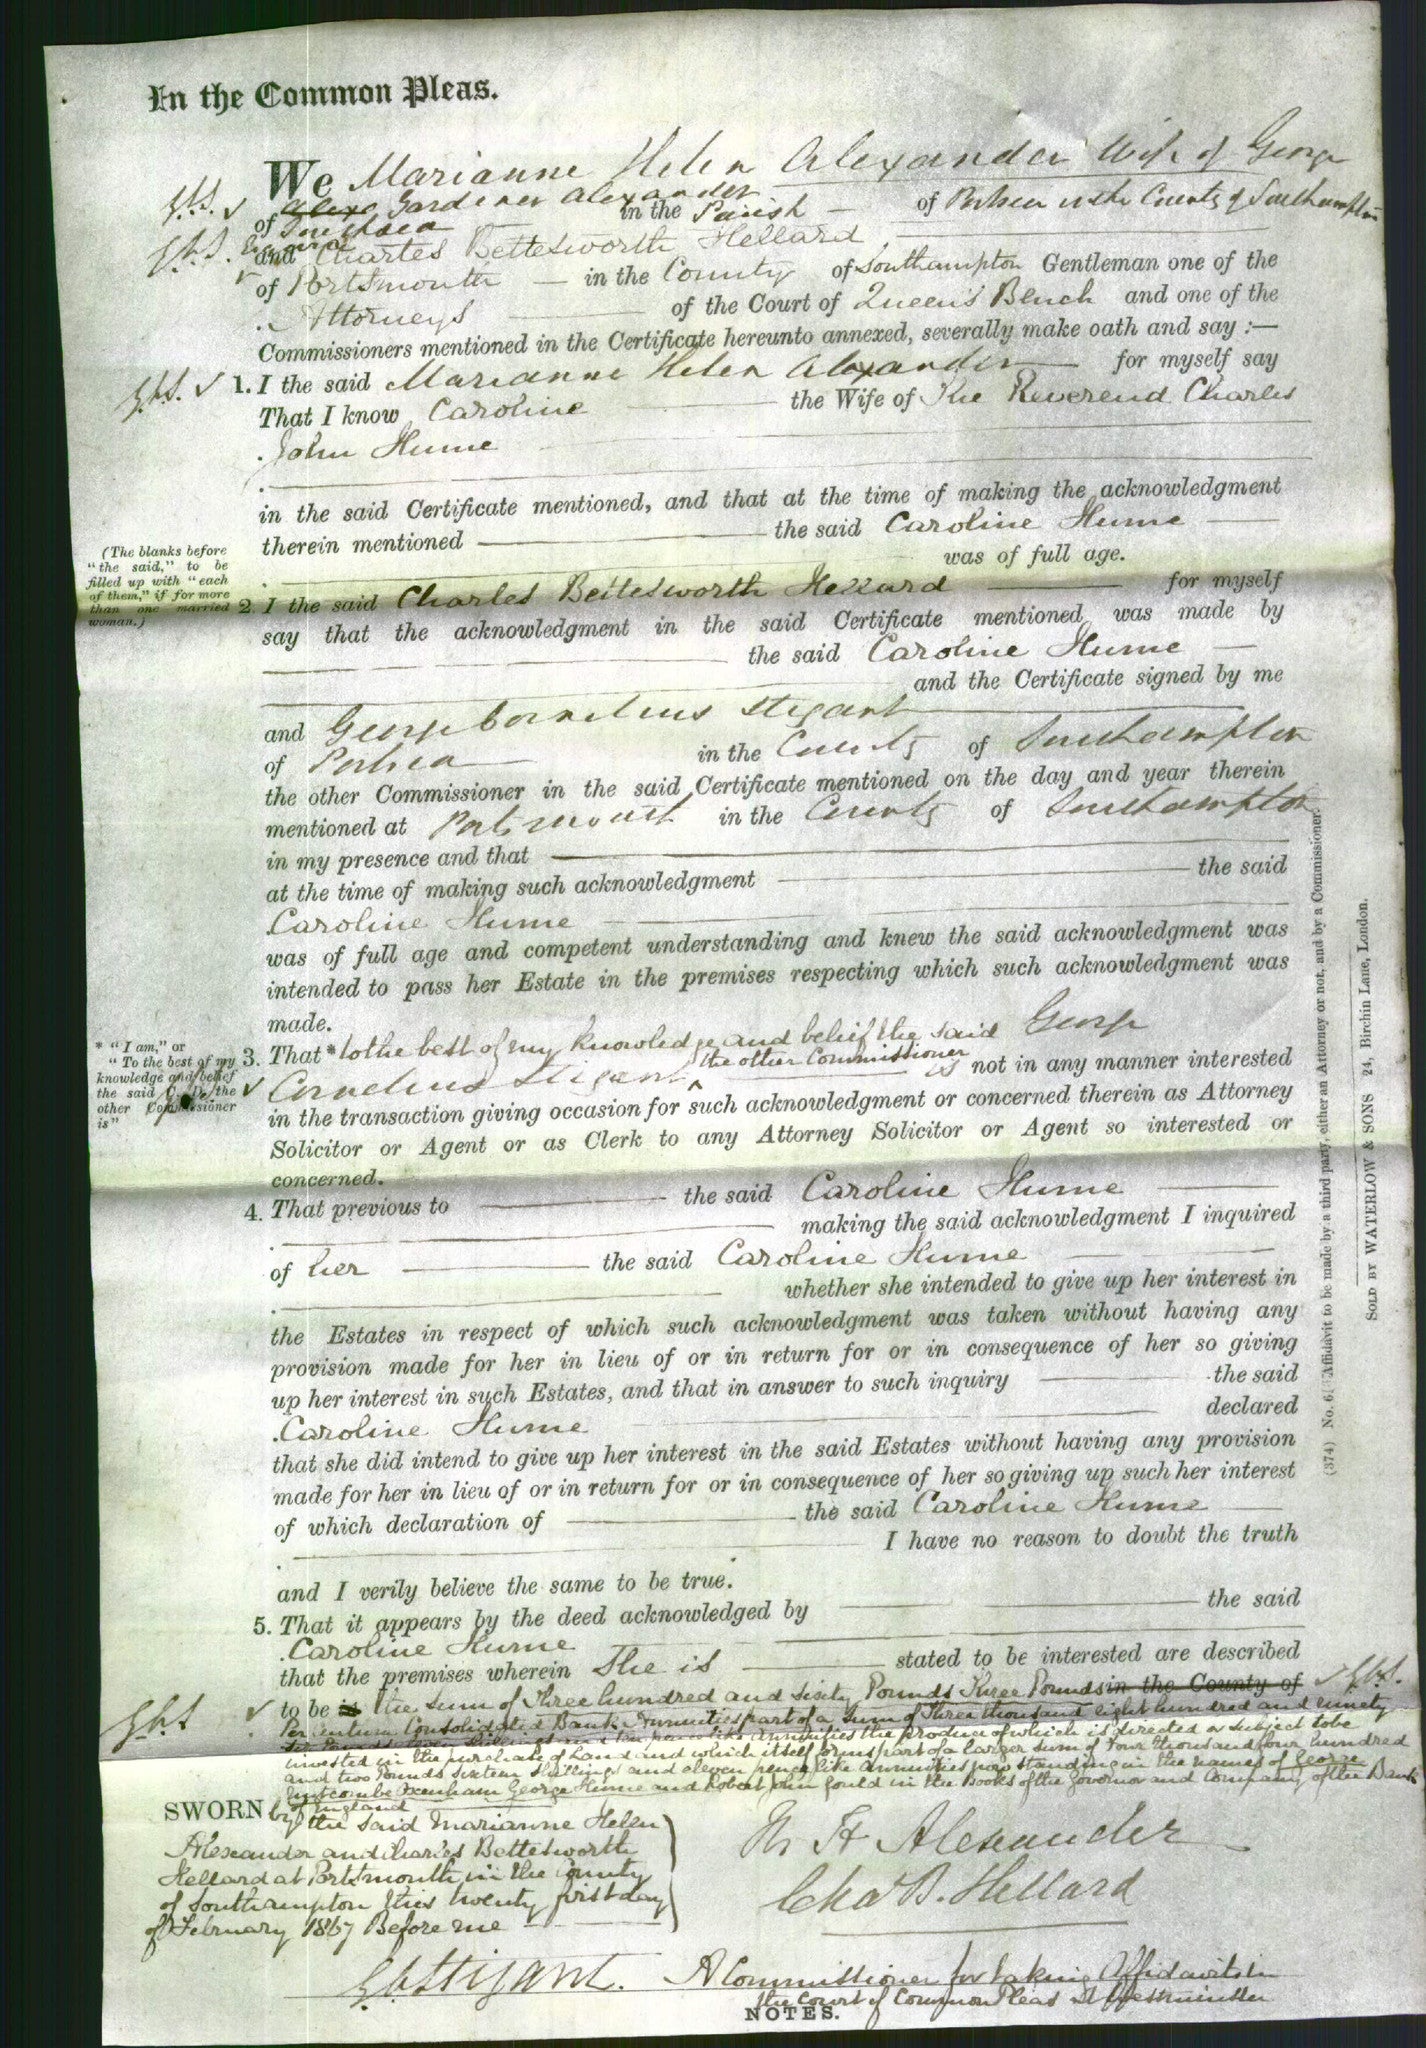 In the Common Pleas.
We Marianne Helen Alexander Wife of George
G.C.S. ✓ Alexr Gardiner Alexander
of Southsea in the Parish — of Portsea in the County of Southampton
G.C.S.
and Charles Bettesworth Hellard
✓ of Portsmouth — in the County of Southampton Gentleman one of the
Attorneys of the Court of Queen's Bench and one of the
Commissioners mentioned in the Certificate hereunto annexed, severally make oath and say :—
G.C.S. ✓ 1. I the said Marianne Helen Alexander for myself say
That I know Caroline the Wife of The Reverend Charles
John Hume
in the said Certificate mentioned, and that at the time of making the acknowledgment
therein mentioned the said Caroline Hume
was of full age.
(The blanks before
"the said," to be
filled up with "each
of them," if for more
than one married
woman.)
2. I the said Charles Bettesworth Hellard for myself
say that the acknowledgment in the said Certificate mentioned was made by
the said Caroline Hume
and the Certificate signed by me
and George Cornelius Stigant
of Portsea in the County of Southampton
the other Commissioner in the said Certificate mentioned on the day and year therein
mentioned at Portsmouth in the County of Southampton
in my presence and that
at the time of making such acknowledgment the said
Caroline Hume
was of full age and competent understanding and knew the said acknowledgment was
intended to pass her Estate in the premises respecting which such acknowledgment was
made.
* "I am," or
"To the best of my
knowledge and belief
the said C. D. the
other Commissioner
is"
3. That * to the best of my knowledge and belief the said George
✓ Cornelius Stigant ^ the other Commissioner is not in any manner interested
in the transaction giving occasion for such acknowledgment or concerned therein as Attorney
Solicitor or Agent or as Clerk to any Attorney Solicitor or Agent so interested or
concerned.
4. That previous to the said Caroline Hume
making the said acknowledgment I inquired
of her the said Caroline Hume
whether she intended to give up her interest in
the Estates in respect of which such acknowledgment was taken without having any
provision made for her in lieu of or in return for or in consequence of her so giving
up her interest in such Estates, and that in answer to such inquiry the said
Caroline Hume declared
that she did intend to give up her interest in the said Estates without having any provision
made for her in lieu of or in return for or in consequence of her so giving up such her interest
of which declaration of the said Caroline Hume
I have no reason to doubt the truth
and I verily believe the same to be true.
5. That it appears by the deed acknowledged by the said
Caroline Hume
that the premises wherein She is stated to be interested are described
G.C.S. ✓ to be is the sum of Three hundred and sixty Pounds Three Pounds in the County of ✓ G.C.S.
Per Centum Consolidated Bank Annuities part of a sum of Three thousand eight hundred and ninety
six Pounds seven shillings and ten pence like annuities the produce of which is directed or subject to be
invested in the purchase of Land and which itself forms part of a larger sum of Four thousand four hundred
and two Pounds sixteen shillings and eleven pence like annuities now standing in the names of George
Luscombe Oxenham George Hume and Robert John Gould in the Books of the Governor and Company of the Bank
of England
SWORN by the said Marianne Helen
Alexander and Charles Bettesworth
Hellard at Portsmouth in the County
of Southampton this twenty first day
of February 1867 Before me
M H Alexander
Chas B. Hellard
G C Stigant. A Commissioner for taking Affidavits in
the Court of Common Pleas at Westminster
NOTES.
(374) No. 6. (Affidavit to be made by a third party, either an Attorney or not, and by a Commissioner.)
SOLD BY WATERLOW & SONS 24, Birchin Lane, London.